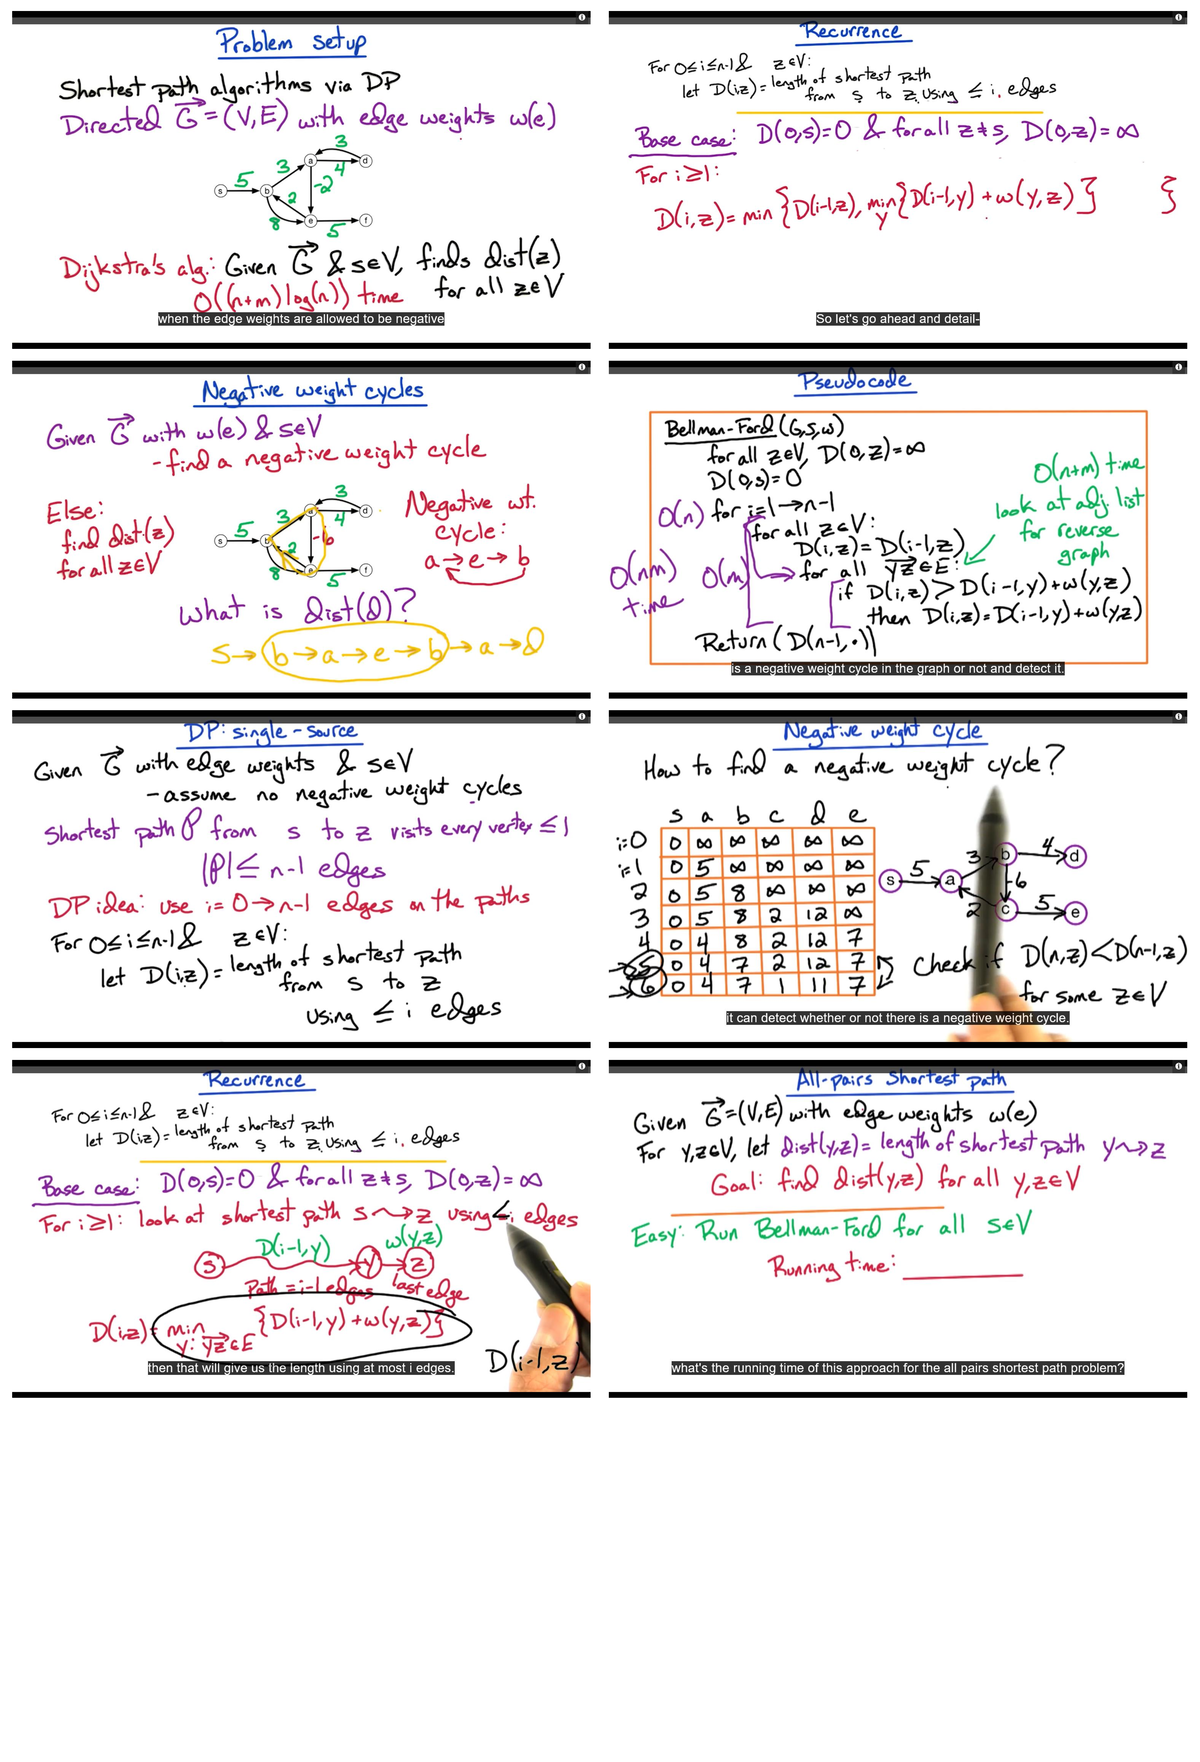 Problem setup
Shortest path algorithms via DP
Directed G = (V, E) with edge weights w(e)
3
a
d
3
4
s
5
b
-2
2
8
e
5
f
Dijkstra's alg.: Given G & s∈V, finds dist(z)
O((n+m)log(n)) time for all z∈V
when the edge weights are allowed to be negative
Recurrence
For 0≤i≤n-1 & z∈V:
let D(i,z) = length of shortest path
from s to z using ≤ i edges
Base case: D(0,s)=0 & for all z≠s, D(0,z)=∞
For i≥1:
D(i,z) = min { D(i-1,z), min { D(i-1,y) + w(y,z) } }
y
So let's go ahead and detail-
Negative weight cycles
Given G with w(e) & s∈V
- find a negative weight cycle
Else:
find dist(z)
for all z∈V
3
a
d
3
4
s
5
b
-6
2
8
e
5
f
Negative wt.
cycle:
a→e→b
What is dist(d)?
s→b→a→e→b→a→d
Pseudocode
Bellman-Ford (G,s,w)
for all z∈V, D(0,z)=∞
D(0,s)=0
O(n) for i=1→n-1
for all z∈V:
D(i,z) = D(i-1,z)
O(nm) time
O(m)
for all yz∈E:
if D(i,z) > D(i-1,y)+w(y,z)
then D(i,z) = D(i-1,y)+w(y,z)
Return (D(n-1,·))
O(n+m) time
look at adj. list
for reverse
graph
is a negative weight cycle in the graph or not and detect it.
DP: single-source
Given G with edge weights & s∈V
- assume no negative weight cycles
Shortest path P from s to z visits every vertex ≤1
|P| ≤ n-1 edges
DP idea: use i=0→n-1 edges on the paths
For 0≤i≤n-1 & z∈V:
let D(i,z) = length of shortest path
from s to z
using ≤ i edges
Negative weight cycle
How to find a negative weight cycle?
s a b c d e
i=0 0 ∞ ∞ ∞ ∞ ∞
i=1 0 5 ∞ ∞ ∞ ∞
2 0 5 8 ∞ ∞ ∞
3 0 5 8 2 12 ∞
4 0 4 8 2 12 7
5 0 4 7 2 12 7
6 0 4 7 1 11 7
s
5
a
3
b
4
d
-6
2
c
5
e
Check if D(n,z) < D(n-1,z)
for some z∈V
it can detect whether or not there is a negative weight cycle.
Recurrence
For 0≤i≤n-1 & z∈V:
let D(i,z) = length of shortest path
from s to z using ≤ i edges
Base case: D(0,s)=0 & for all z≠s, D(0,z)=∞
For i≥1: look at shortest path s⇝z using ≤i edges
D(i-1,y) w(y,z)
s y z
Path = i-1 edges last edge
D(i,z) = min { D(i-1,y) + w(y,z) }
y: yz∈E
D(i-1,z)
then that will give us the length using at most i edges.
All-pairs shortest path
Given G=(V,E) with edge weights w(e)
For y,z∈V, let dist(y,z) = length of shortest path y⇝z
Goal: find dist(y,z) for all y,z∈V
Easy: Run Bellman-Ford for all s∈V
Running time: ________
what's the running time of this approach for the all pairs shortest path problem?